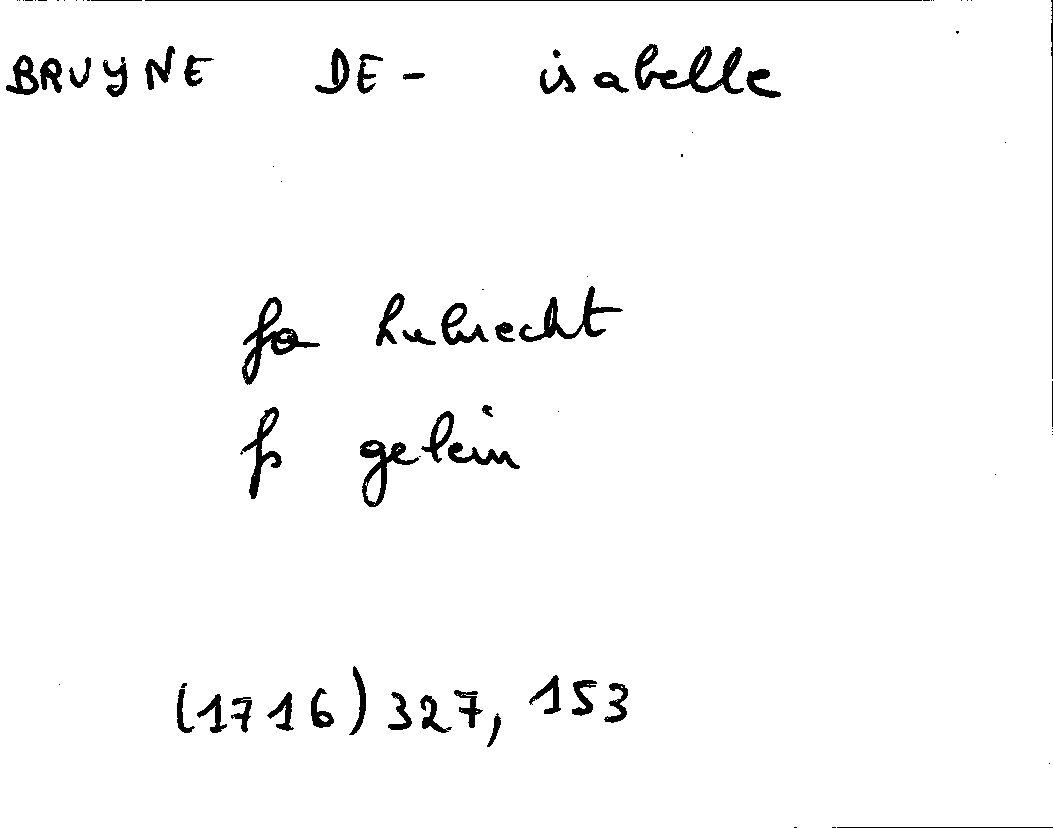 BRUYNE DE- isabelle
fa Lubrecht
fs gelein
(1716) 327, 153